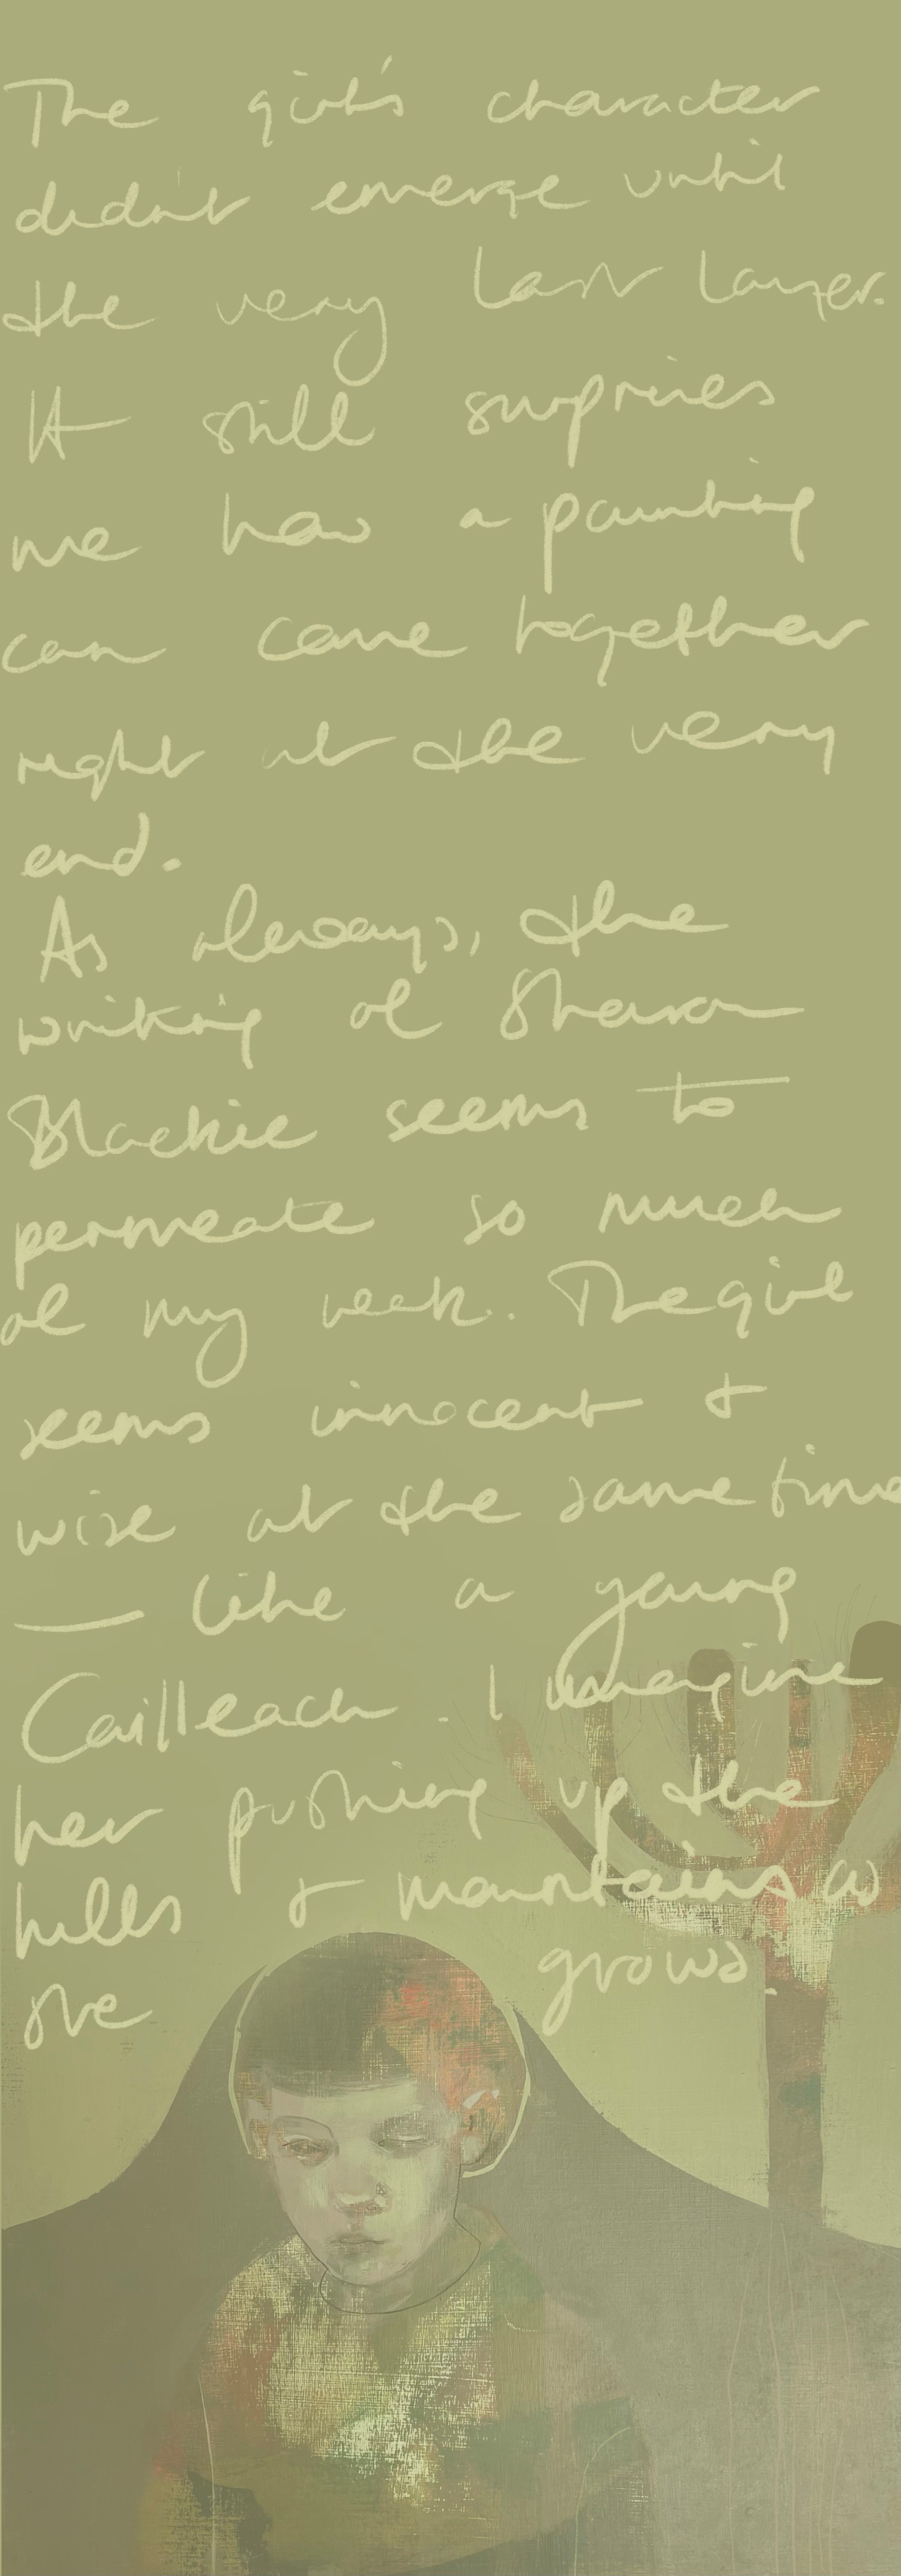 The girl's character
didn't emerge until
the very last layer.
It still surprises
me how a painting
can come together
right at the very
end.
As always, the
writing of Sharon
Blackie seems to
permeate so much
of my week. The girl
seems innocent &
wise at the same time
— like a young
Cailleach. I imagine
her pushing up the
hills & mountains as
she grows.